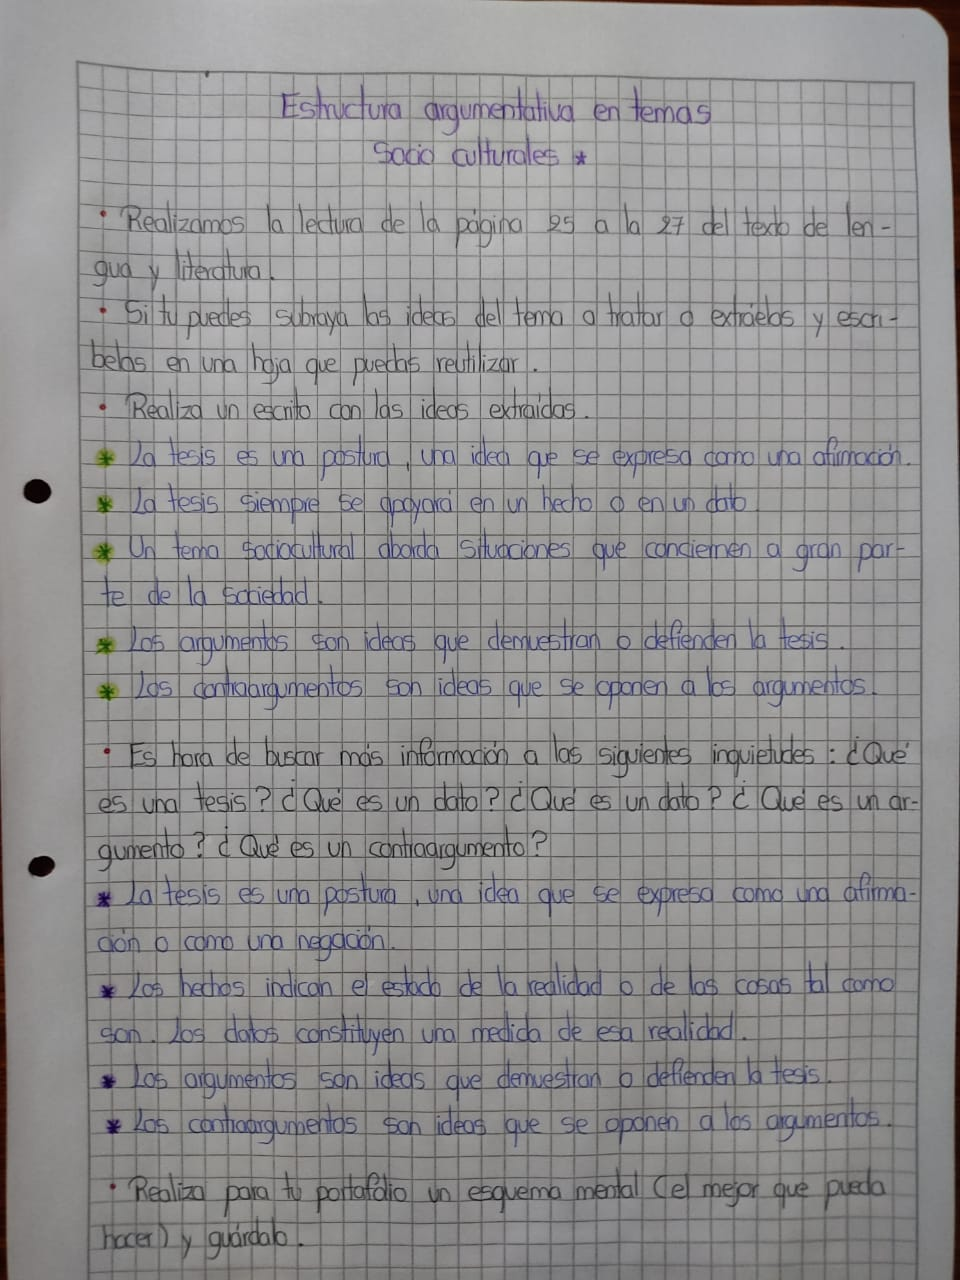 Estructura argumentativa en temas
Socio culturales *
• Realizamos la lectura de la página 25 a la 27 del texto de len-
gua y literatura.
• Si tu puedes subraya las ideas del tema a tratar o extráelas y escri-
belas en una hoja que puedas reutilizar.
• Realiza un escrito con las ideas extraídas.
* La tesis es una postura, una idea que se expresa como una afirmación.
* La tesis siempre se apoyará en un hecho o en un dato
* Un tema sociocultural aborda situaciones que conciernen a gran par-
te de la sociedad.
* Los argumentos son ideas que demuestran o defienden la tesis.
* Los contraargumentos son ideas que se oponen a los argumentos.
• Es hora de buscar más información a las siguientes inquietudes: ¿Qué
es una tesis? ¿Qué es un dato? ¿Qué es un dato? ¿Qué es un ar-
gumento? ¿Qué es un contraargumento?
* La tesis es una postura, una idea que se expresa como una afirma-
ción o como una negación.
* Los hechos indican el estado de la realidad o de las cosas tal como
son. Los datos constituyen una medida de esa realidad.
* Los argumentos son ideas que demuestran o defienden la tesis.
* Los contraargumentos son ideas que se oponen a los argumentos.
• Realiza para tu portafolio un esquema mental (el mejor que pueda
hacer) y guárdalo.